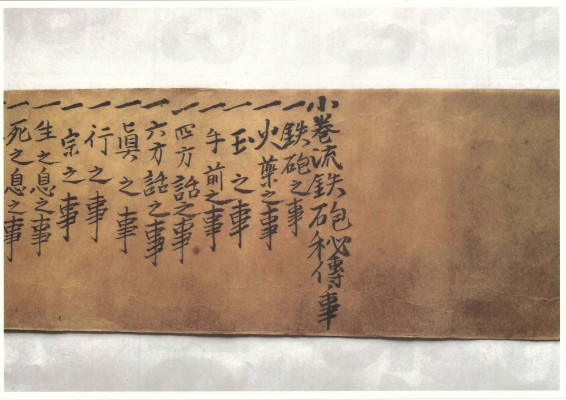 小巻流鉄砲秘傳事
一鉄砲之事
一火薬之事
一玉之事
一手前之事
一四方詰之事
一六方詰之事
一眞之事
一行之事
一宗之事
一生之息之事
一死之息之事